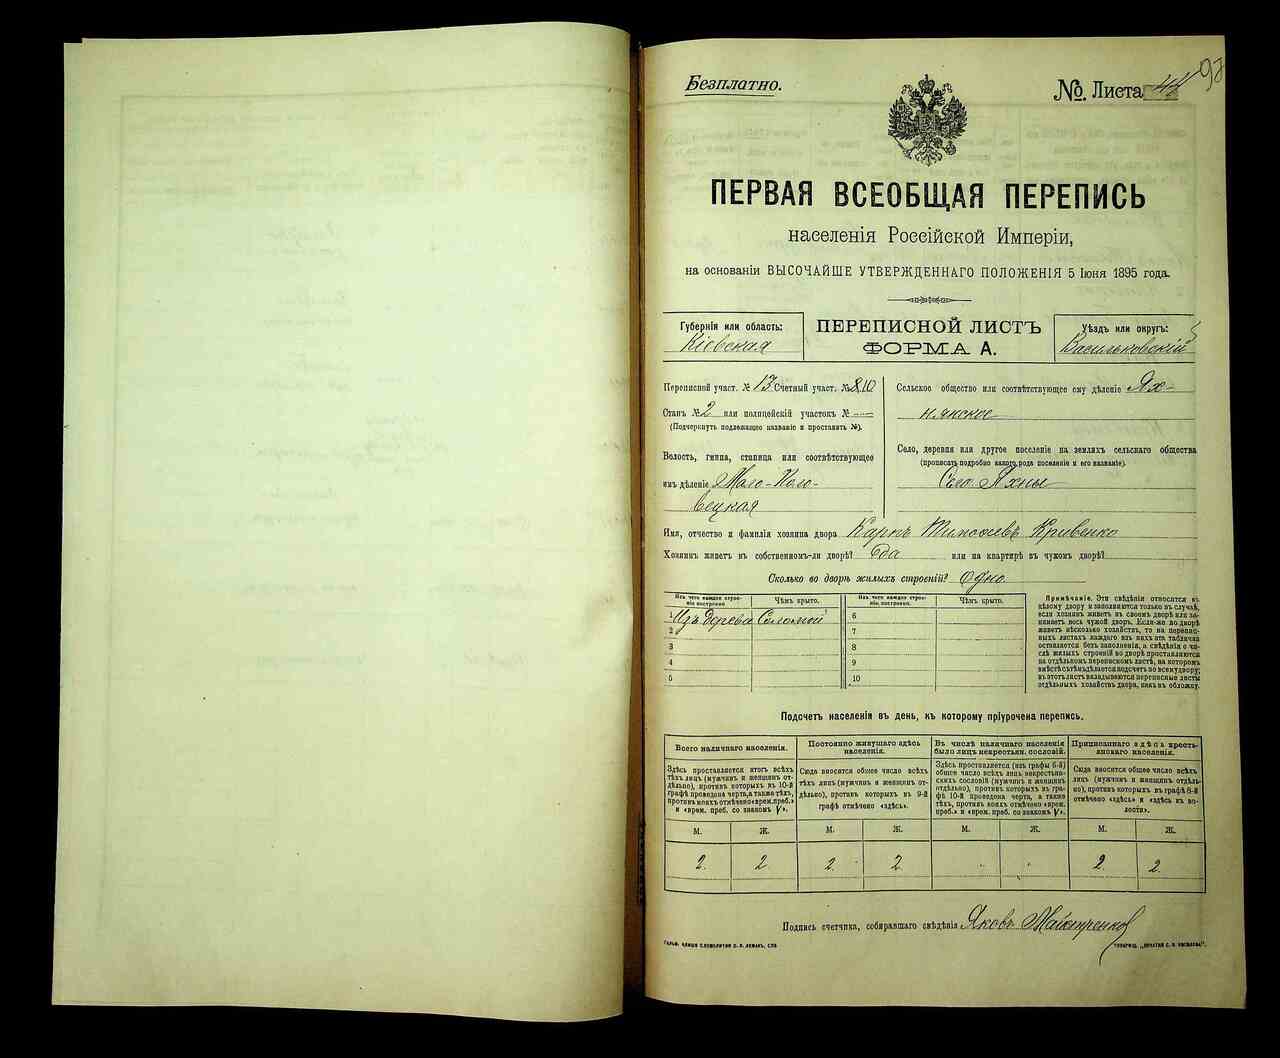 Безплатно.
№. Листа 44
97
ПЕРВАЯ ВСЕОБЩАЯ ПЕРЕПИСЬ
населенія Россійской Имперіи,
на основаніи ВЫСОЧАЙШЕ УТВЕРЖДЕННАГО ПОЛОЖЕНІЯ 5 Іюня 1895 года.
Губернія или область:
Кіевская
ПЕРЕПИСНОЙ ЛИСТЪ
ФОРМА А.
Уѣздъ или округъ:
Васильковскій
Переписной участ. № 13 Счетный участ. № 10
Станъ № 2 или полицейскій участокъ № —
(Подчеркнуть подлежащее названіе и проставить №).
Волость, гмина, станица или соотвѣтствующее
имъ дѣленіе Мало-Поло-
вецкая
Сельское общество или соотвѣтствующее ему дѣленіе Ях-
нянское
Село, деревня или другое поселеніе на земляхъ сельскаго общества
(прописать подробно какого рода поселеніе и его названіе).
Село Яхны
Имя, отчество и фамилія хозяина двора Карпъ Тимофѣевъ Кривенко
Хозяинъ живетъ въ собственномъ-ли дворѣ? Да или на квартирѣ въ чужомъ дворѣ?
Сколько во дворѣ жилыхъ строеній? Одно
Изъ чего каждое строе-
ніе построено
Чѣмъ крыто.
Изъ чего каждое строе-
ніе построено.
Чѣмъ крыто.
1 Изъ дерева Соломой
2
3
4
5
6
7
8
9
10
Примѣчаніе. Эти свѣдѣнія относятся къ
цѣлому двору и заполняются только въ случаѣ,
если хозяинъ живетъ въ своемъ дворѣ или за-
нимаетъ весь чужой дворъ. Если-же во дворѣ
живетъ нѣсколько хозяйствъ, то на перепис-
ныхъ листахъ каждаго изъ нихъ эта табличка
оставляется безъ заполненія, а свѣдѣнія о чи-
слѣ жилыхъ строеній во дворѣ проставляются
на отдѣльномъ переписномъ листѣ, на которомъ
вмѣстѣ съ тѣмъ дѣлается подсчетъ по всему двору;
въ этотъ листъ вкладываются переписные листы
отдѣльныхъ хозяйствъ двора, какъ въ обложку.
Подсчетъ населенія въ день, къ которому пріурочена перепись.
Всего наличнаго населенія.
Здѣсь проставляется итогъ всѣхъ
тѣхъ лицъ (мужчинъ и женщинъ от-
дѣльно), противъ которыхъ въ 10-й
графѣ проведена черта, а также тѣхъ,
противъ коихъ отмѣчено «врем. преб.»
и «врем. преб. со знакомъ V».
Постоянно живущаго здѣсь
населенія.
Сюда вносится общее число всѣхъ
тѣхъ лицъ (мужчинъ и женщинъ от-
дѣльно), противъ которыхъ въ 9-й
графѣ отмѣчено «здѣсь».
Въ числѣ наличнаго населенія
было лицъ некрестьян. сословій.
Здѣсь проставляется (изъ графы 6-й)
общее число всѣхъ лицъ некрестьян-
скихъ сословій (мужчинъ и женщинъ
отдѣльно), противъ которыхъ въ гра-
фѣ 10-й проведена черта, а также
тѣхъ, противъ коихъ отмѣчено «врем.
преб.» и «врем. преб. со знакомъ V».
Приписаннаго здѣсь кресть-
янскаго населенія.
Сюда вносится общее число всѣхъ
лицъ (мужчинъ и женщинъ отдѣль-
но), противъ которыхъ въ графѣ 8-й
отмѣчено «здѣсь» и «здѣсь въ во-
лости».
М. Ж. М. Ж. М. Ж. М. Ж.
2. 2 2. 2 2. 2.
Подпись счетчика, собиравшаго свѣдѣнія Яковъ